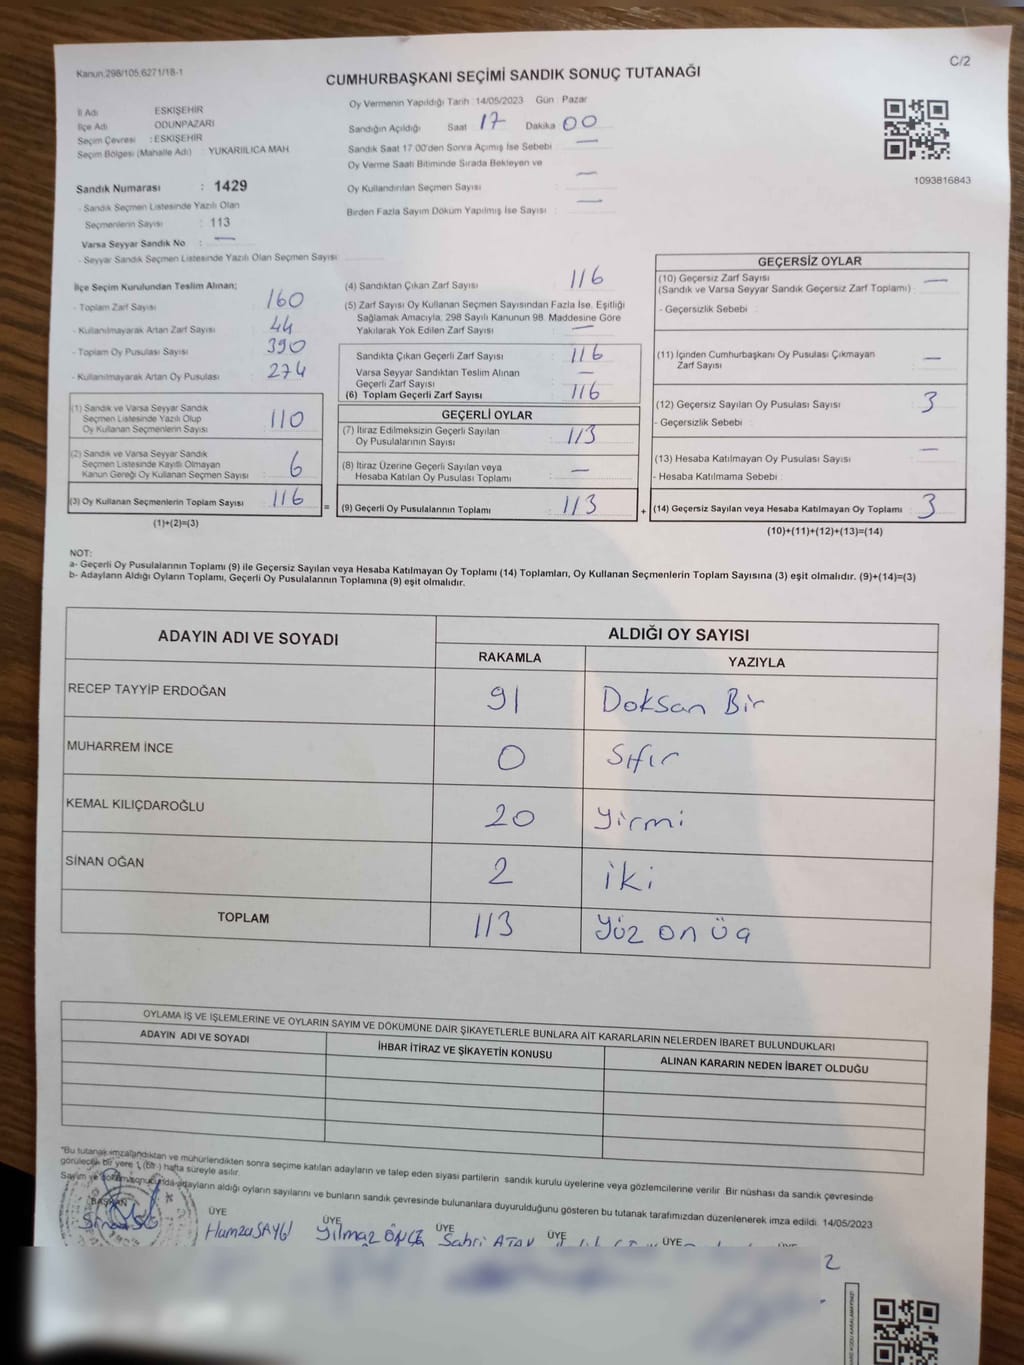 Kanun,298/105,6271/18-1
C/2
CUMHURBAŞKANI SEÇİMİ SANDIK SONUÇ TUTANAĞI
İl Adı ESKİŞEHİR
İlçe Adı ODUNPAZARI
Seçim Çevresi : ESKİŞEHİR
Seçim Bölgesi (Mahalle Adı) YUKARIILICA MAH
Sandık Numarası : 1429
- Sandık Seçmen Listesinde Yazılı Olan
Seçmenlerin Sayısı : 113
Varsa Seyyar Sandık No : —
- Seyyar Sandık Seçmen Listesinde Yazılı Olan Seçmen Sayısı
Oy Vermenin Yapıldığı Tarih : 14/05/2023 Gün : Pazar
Sandığın Açıldığı Saat 17 Dakika 00
Sandık Saat 17 00'den Sonra Açımış İse Sebebi : —
Oy Verme Saati Bitiminde Sırada Bekleyen ve
Oy Kullandırılan Seçmen Sayısı : —
Birden Fazla Sayım Döküm Yapılmış İse Sayısı : —
1093816843
İlçe Seçim Kurulundan Teslim Alınan;
- Toplam Zarf Sayısı : 160
- Kullanılmayarak Artan Zarf Sayısı 44
- Toplam Oy Pusulası Sayısı : 390
- Kullanılmayarak Artan Oy Pusulası : 274
(1) Sandık ve Varsa Seyyar Sandık
Seçmen Listesinde Yazılı Olup
Oy Kullanan Seçmenlerin Sayısı : 110
(2) Sandık ve Varsa Seyyar Sandık
Seçmen Listesinde Kayıtlı Olmayan
Kanun Gereği Oy Kullanan Seçmen Sayısı : 6
(3) Oy Kullanan Seçmenlerin Toplam Sayısı : 116
(1)+(2)=(3)
(4) Sandıktan Çıkan Zarf Sayısı : 116
(5) Zarf Sayısı Oy Kullanan Seçmen Sayısından Fazla İse, Eşitliği
Sağlamak Amacıyla, 298 Sayılı Kanunun 98. Maddesine Göre
Yakılarak Yok Edilen Zarf Sayısı : —
Sandıkta Çıkan Geçerli Zarf Sayısı : 116
Varsa Seyyar Sandıktan Teslim Alınan
Geçerli Zarf Sayısı : —
(6) Toplam Geçerli Zarf Sayısı : 116
GEÇERLİ OYLAR
(7) İtiraz Edilmeksizin Geçerli Sayılan
Oy Pusulalarının Sayısı : 113
(8) İtiraz Üzerine Geçerli Sayılan veya
Hesaba Katılan Oy Pusulası Toplamı : —
= (9) Geçerli Oy Pusulalarının Toplamı : 113
GEÇERSİZ OYLAR
(10) Geçersiz Zarf Sayısı
(Sandık ve Varsa Seyyar Sandık Geçersiz Zarf Toplamı) : —
- Geçersizlik Sebebi :
(11) İçinden Cumhurbaşkanı Oy Pusulası Çıkmayan
Zarf Sayısı : —
(12) Geçersiz Sayılan Oy Pusulası Sayısı : 3
- Geçersizlik Sebebi :
(13) Hesaba Katılmayan Oy Pusulası Sayısı : —
- Hesaba Katılmama Sebebi :
+ (14) Geçersiz Sayılan veya Hesaba Katılmayan Oy Toplamı : 3
(10)+(11)+(12)+(13)=(14)
NOT:
a- Geçerli Oy Pusulalarının Toplamı (9) ile Geçersiz Sayılan veya Hesaba Katılmayan Oy Toplamı (14) Toplamları, Oy Kullanan Seçmenlerin Toplam Sayısına (3) eşit olmalıdır. (9)+(14)=(3)
b- Adayların Aldığı Oyların Toplamı, Geçerli Oy Pusulalarının Toplamına (9) eşit olmalıdır.
ADAYIN ADI VE SOYADI ALDIĞI OY SAYISI
RAKAMLA YAZIYLA
RECEP TAYYİP ERDOĞAN 91 Doksan Bir
MUHARREM İNCE 0 Sıfır
KEMAL KILIÇDAROĞLU 20 yirmi
SİNAN OĞAN 2 iki
TOPLAM 113 yüz on üç
OYLAMA İŞ VE İŞLEMLERİNE VE OYLARIN SAYIM VE DÖKÜMÜNE DAİR ŞİKAYETLERLE BUNLARA AİT KARARLARIN NELERDEN İBARET BULUNDUKLARI
ADAYIN ADI VE SOYADI İHBAR İTİRAZ VE ŞİKAYETİN KONUSU ALINAN KARARIN NEDEN İBARET OLDUĞU
*Bu tutanak imzalandıktan ve mühürlendikten sonra seçime katılan adayların ve talep eden siyasi partilerin sandık kurulu üyelerine veya gözlemcilerine verilir Bir nüshası da sandık çevresinde
görülecek bir yere 1 (bir) hafta süreyle asılır.
Sayım ve döküm sonucunda adayların aldığı oyların sayılarını ve bunların sandık çevresinde bulunanlara duyurulduğunu gösteren bu tutanak tarafımızdan düzenlenerek imza edildi. 14/05/2023
BAŞKAN ÜYE ÜYE ÜYE ÜYE ÜYE
Hamza SAYGI Yılmaz ÖNCE Sabri ATAY